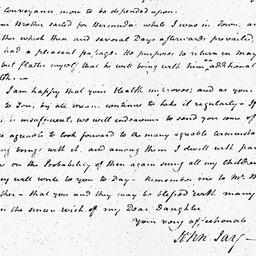 conveyance more to be depended upon.
our Brother sailed for Bermuda while I was in Town, an
ther which then and several Days afterwards prevailed,
had a pleasant passage. He purposes to return in May
but flatter myself that he will bring with him additional
lth.—
I am happy that your Health improves; and as you
to Iron, by all means continue to take it regularly— If
is insufficient, we will endeavour to send you some of
is agreeable to look forward to the many agreable circumsta
ng brings with it, and among them I dwell with par
on the Probability of then again seeing all my children
ey will write to you to-Day— Remember me to Mr. B
ther— that you and they may be blessed with many
the sincere wish of my Dear Daughter
Your very affectionate
John Jay—